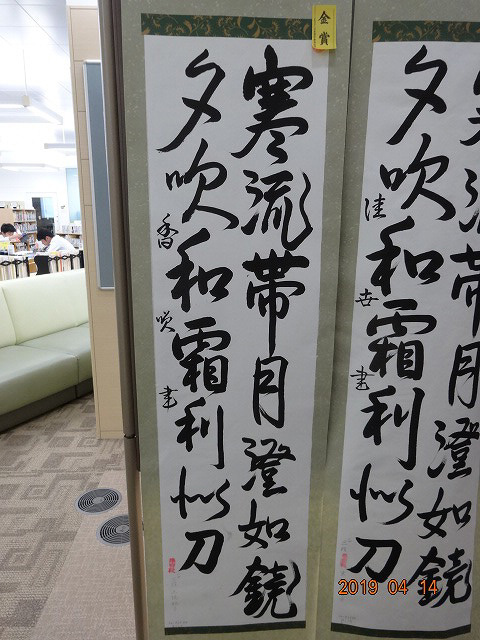 金賞
寒流帯月澄如鏡
夕吹和霜利似刀
香咲書
寒流帯月澄如鏡
夕吹和霜利似刀
佳世書
2019 04 14